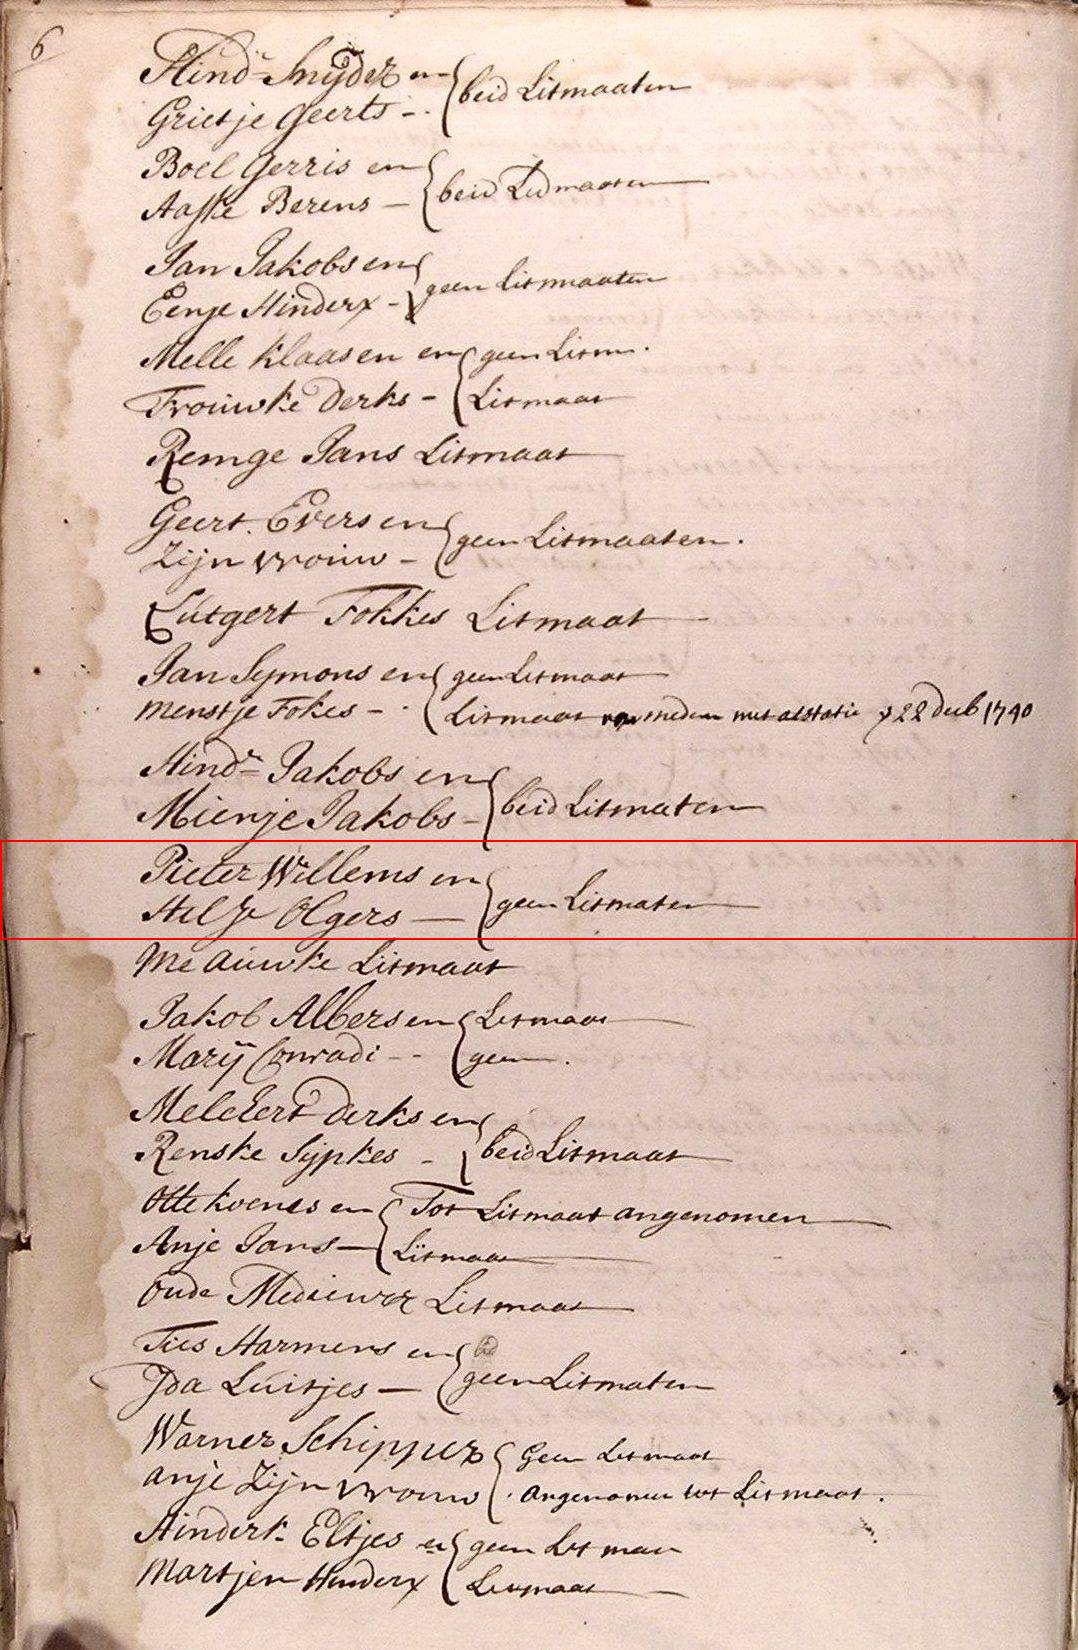 6
Hindr Snijder en { beid Litmaaten
Grietje Geerts - .
Boel Gerris en { beid Ledmaaten
Aafke Berens -
Jan Jakobs en { geen Litmaaten
Eenje Hinderx -
Melle Klaasen en { geen Litm.
Trouwke Derks - { Litmaat
Remge Jans Litmaat
Geert Evers en { geen Litmaaten.
Zijn vrouw -
Lutgert Fokkes Litmaat
Jan Symons en { geen Litmaat
Menstje Fokes - . { Litmaat met atstatie 22 Decb 1740
Hindr Jakobs en { beid Litmaten
Mienje Jakobs -
Pieter Willems en { geen Litmaten
Hilje Olgers -
Meauwke Litmaat
Jakob Albers en { Litmaat
Marij Conradi - - { geen.
Melchert Derks en { beid Litmaat
Renske Sijpkes -
Otte Koenes en { Tot Litmaat angenomen
Anje Jans - { Litmaat
Oude Litmaat
Ties Harmens en { geen Litmaten
Ida Luitjes -
Warner Schipper { Geen Litmaat
anje Zijn vrouw { . angenomen tot Litmaat.
Hinderk Eltjes en { geen Litmaat
Martjen Hinderx { Litmaat